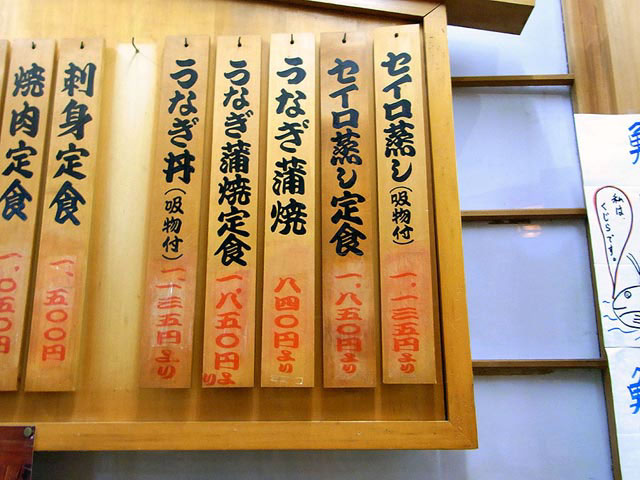 セイロ蒸し(吸物付)一、一三五円より
セイロ蒸し定食一、八五〇円より
うなぎ蒲焼八四〇円より
うなぎ蒲焼定食一、八五〇円より
うなぎ丼(吸物付)一、一三五円より
刺身定食一、五〇〇円
焼肉定食一、〇五〇円
私は
くじらです。